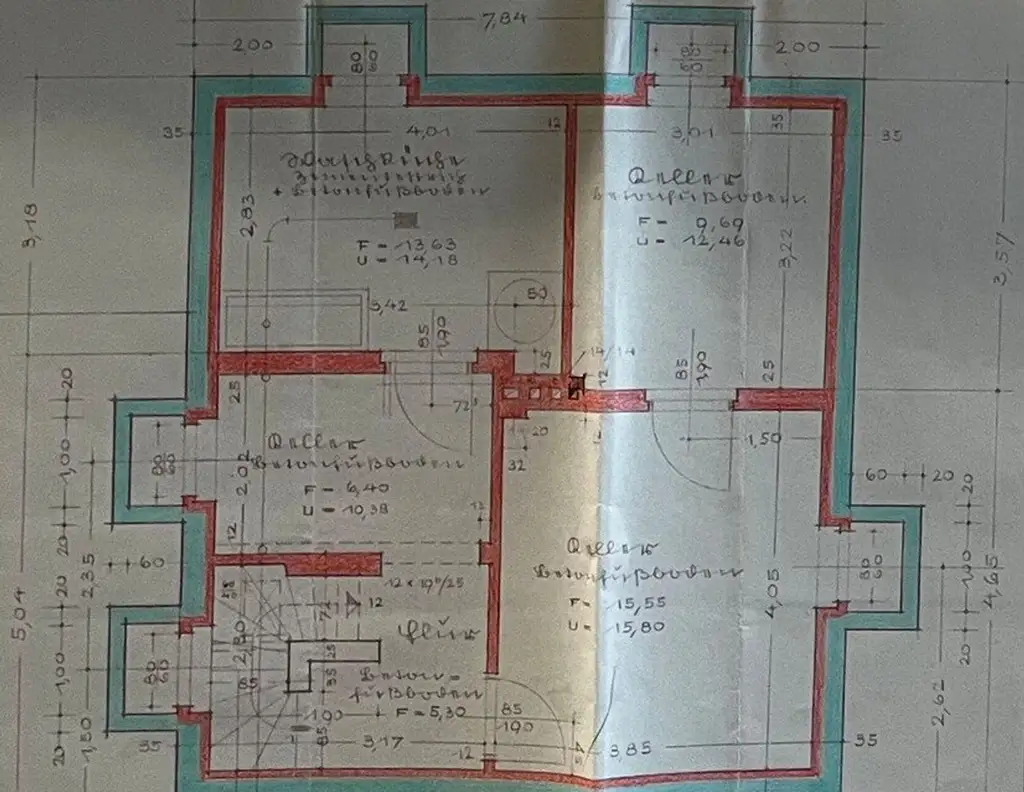 7,84
2,00
80
60
80
60
2,00
35
4,01
12
3,01
35
35
Waschküche
+ Betonfußboden
F = 13,63
U = 14,18
Keller
Betonfußboden
F = 9,69
U = 12,46
3,18
2,83
3,22
3,57
3,42
80
85
1,90
25
14/14
12
85
1,90
25
20
25
72
20
32
1,50
1,00
80
60
2,02
Keller
Betonfußboden
F = 6,40
U = 10,38
60
20
20
12
12
20
2,35
20
60
12 x 19⁵/25
Keller
Betonfußboden
F = 15,55
U = 15,80
4,05
80
60
1,00
4,65
5,04
72
12
Flur
20
1,00
80
60
2,80
85
25
35
Beton=
fußboden
F = 5,30
1,90
85
1,90
2,62
20
1,50
35
3,17
85
12
3,85
35